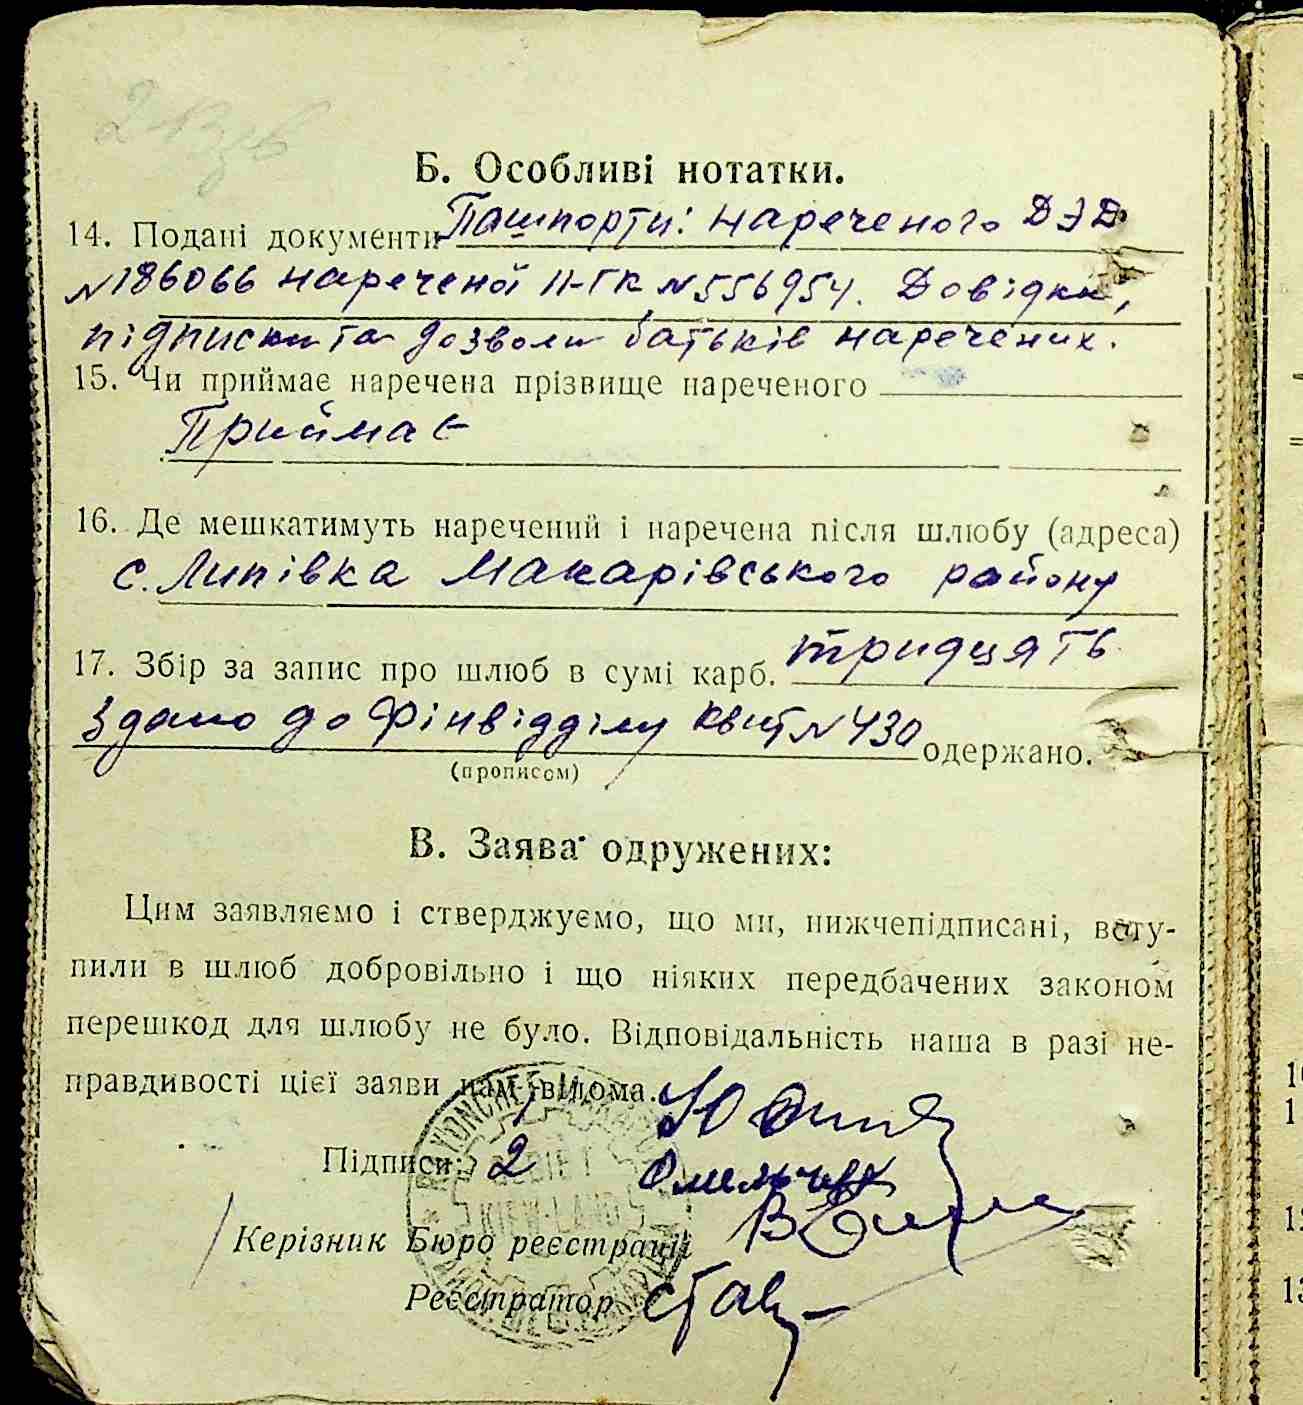 Б. Особливі нотатки.
14. Подані документи Пашпорти: нареченого ДЭД
№186066 нареченої II-ГК №556954. Довідки,
підписки та дозволи батьків наречених.
15. Чи приймає наречена прізвище нареченого
Приймає
16. Де мешкатимуть наречений і наречена після шлюбу (адреса)
с. Липівка Макарівського району
17. Збір за запис про шлюб в сумі карб. тридцять
Здано до Фінвідділу квит №430 одержано.
(прописом)
В. Заява одружених:
Цим заявляємо і стверджуємо, що ми, нижчепідписані, всту-
пили в шлюб добровільно і що ніяких передбачених законом
перешкод для шлюбу не було. Відповідальність наша в разі не-
правдивості цієї заяви нам відома.
Підписи: 2 Омельчук
Керізник Бюро реєстрації
Реєстратор
KIEW-LAND